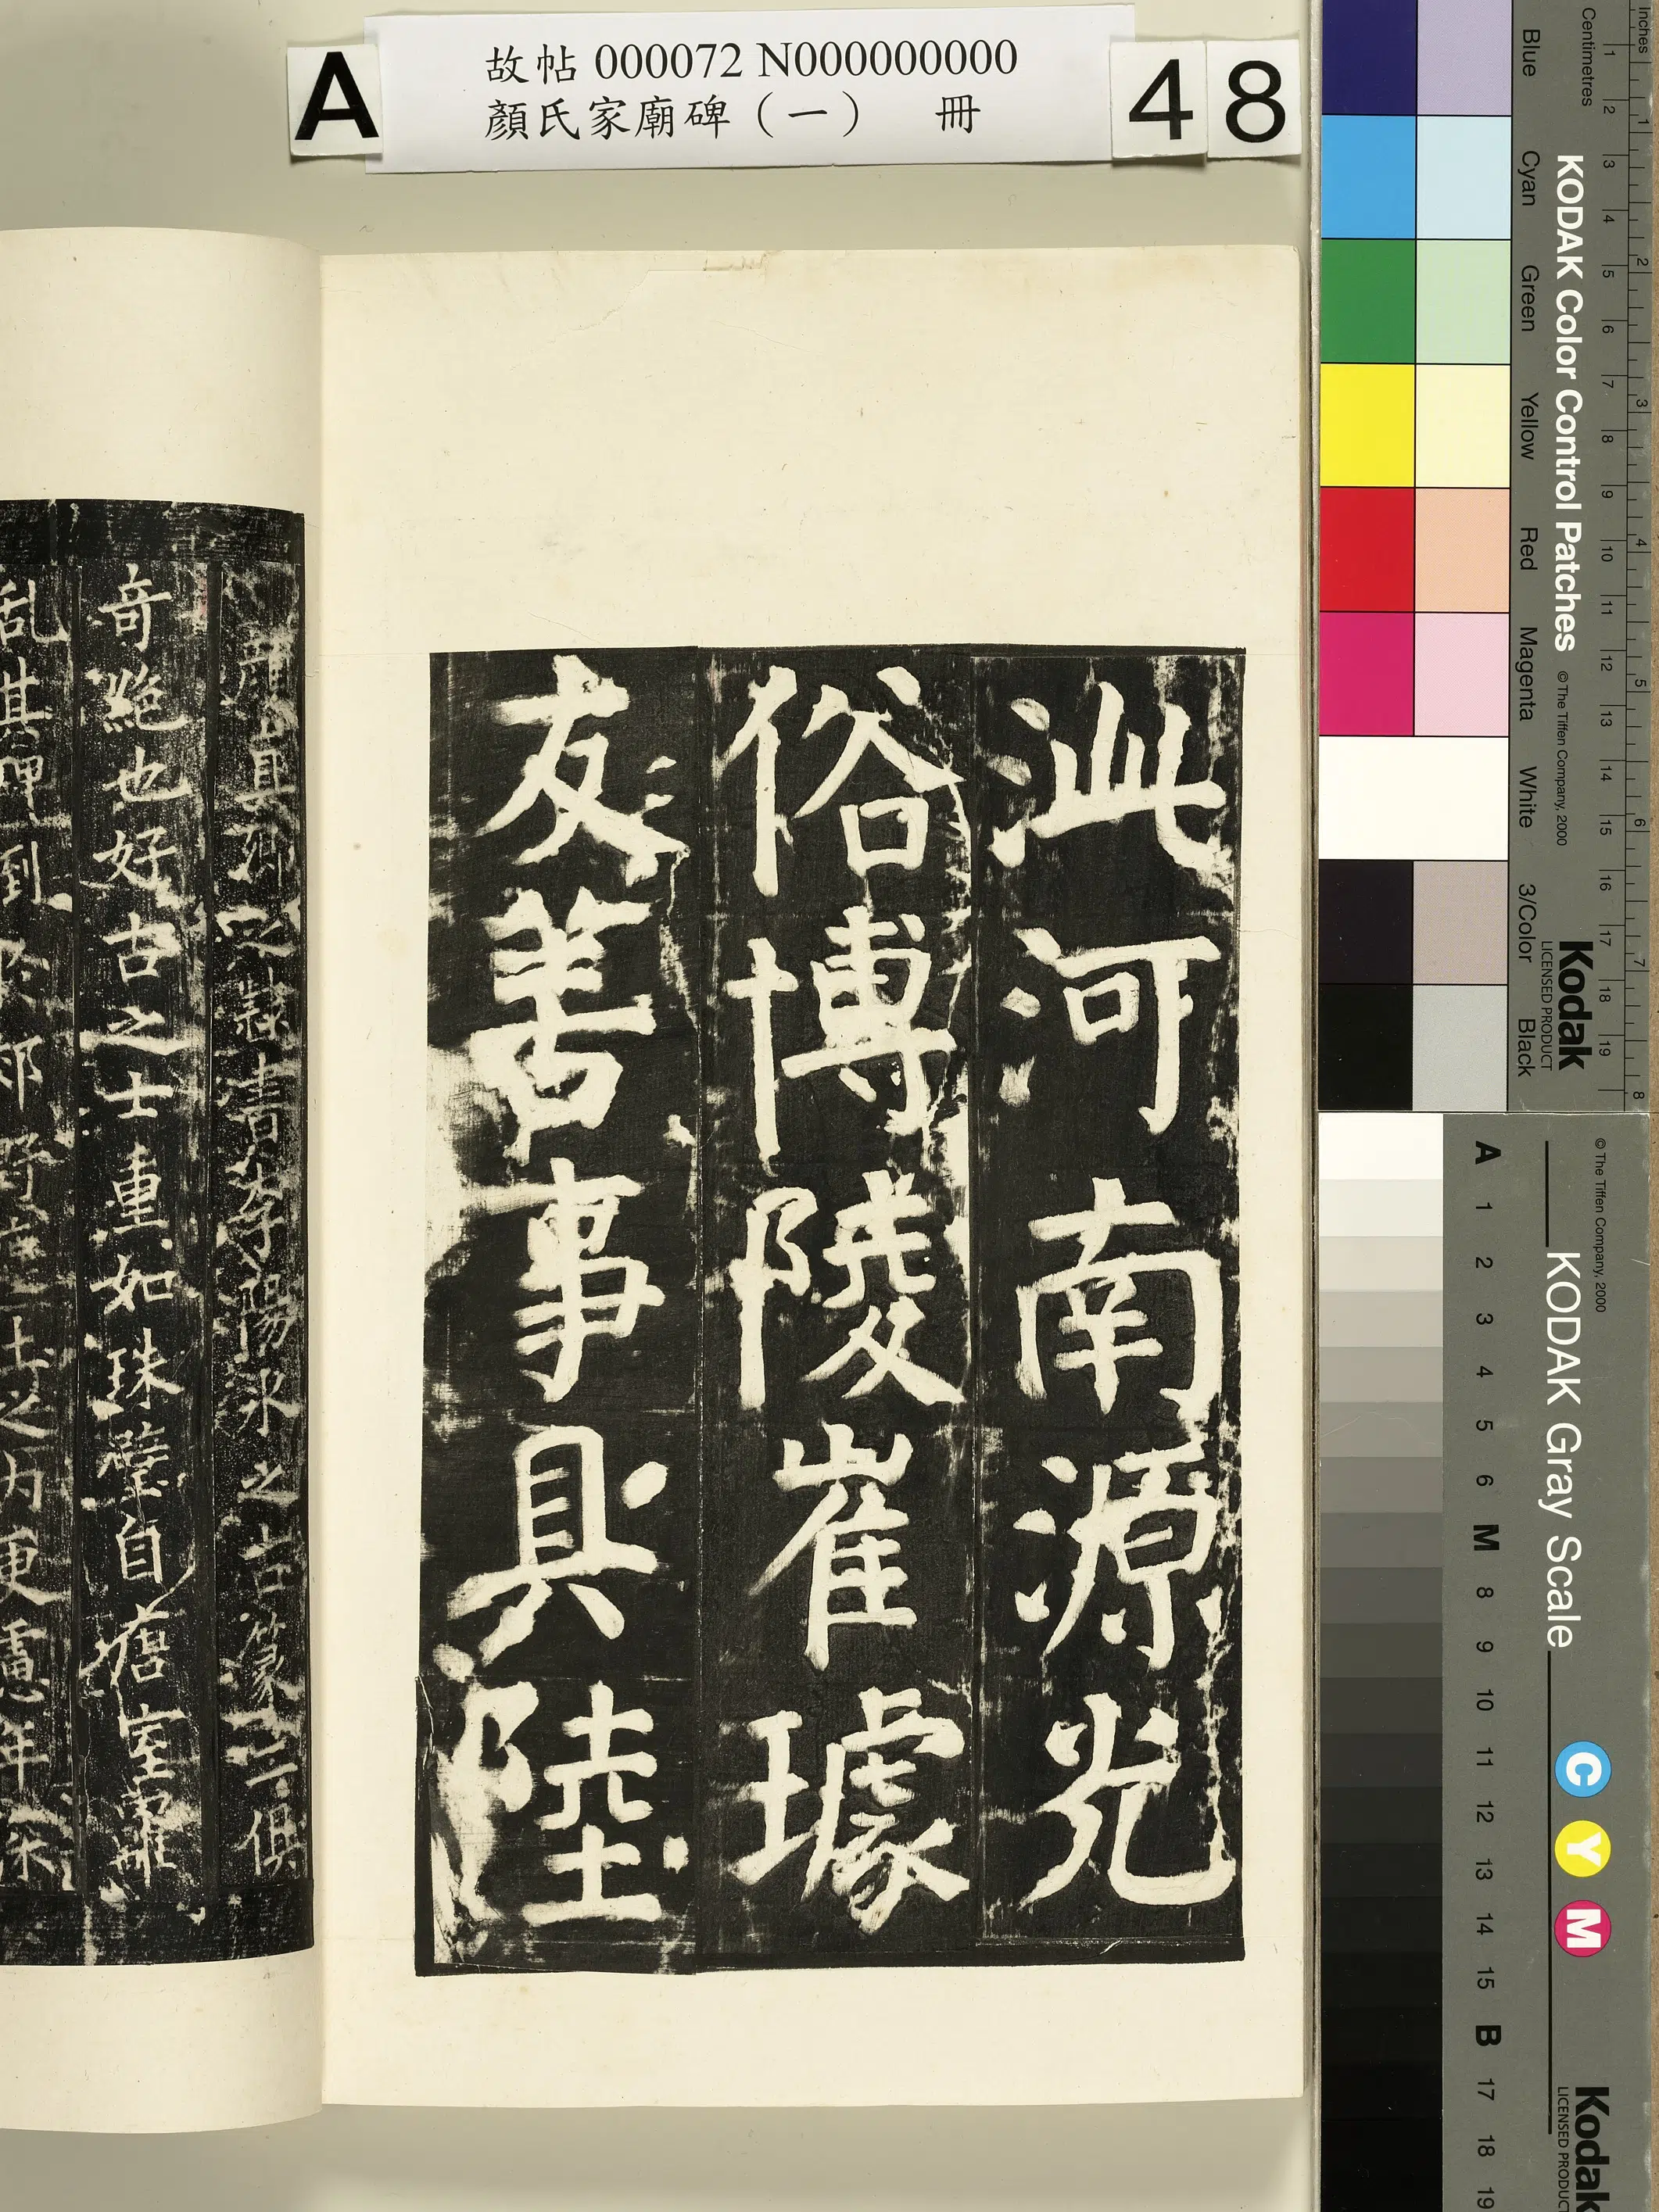 故帖 000072 N000000000
顏氏家廟碑（一） 冊
A
48
泚河南源光
俗博陵崔璩
友善事具陸
奇絶也好古之士重如珠璧自唐室罹
乱其碑倒於郊野
士之內更慮年深
之隸書李陽冰之古篆二俱
Inches
Centimetres
KODAK Color Control Patches
© The Tiffen Company, 2000
Kodak
LICENSED PRODUCT
Blue
Cyan
Green
Yellow
Red
Magenta
White
3/Color
Black
KODAK Gray Scale
© The Tiffen Company, 2000
C Y M
Kodak
LICENSED PRODUCT
A 1 2 3 4 5 6 M 8 9 10 11 12 13 14 15 B 17 18 19